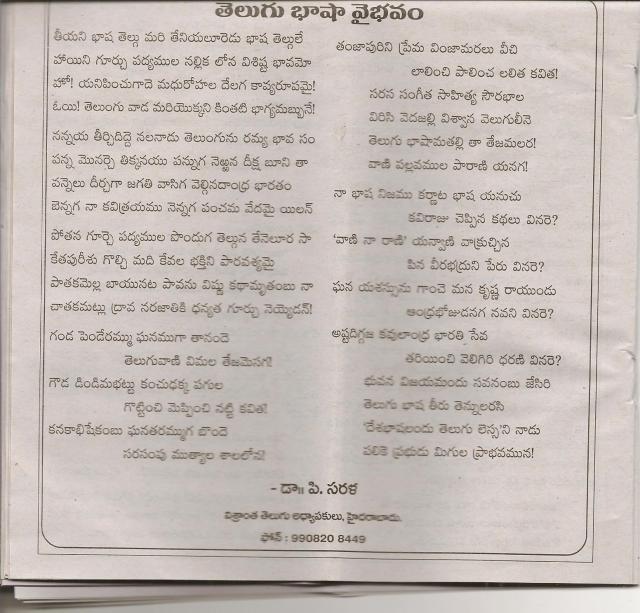 తెలుగు భాషా వైభవం
తీయని భాష తెల్గు మరి తేనియలూరెడు భాష తెల్గులే
హాయిని గూర్చు పద్యముల నల్లిక లోన విశిష్ట భావమో
హో! యనిపించుగాదె మధురోహల దేలగ కావ్యరూపమై!
ఓయి! తెలుంగు వాడ మరియొక్కని కింతటి భాగ్యమబ్బునే!
నన్నయ తీర్చిదిద్దె నలనాడు తెలుంగును రమ్య భావ సం
పన్న మొనర్చె తిక్కనయు పన్నుగ నెఱ్ఱన దీక్ష బూని తా
వన్నెలు దీర్చగా జగతి వాసిగ వెల్గినదాంధ్ర భారతం
బెన్నగ నా కవిత్రయము నెన్నగ పంచమ వేదమై యిలన్
పోతన గూర్చె పద్యముల పొందుగ తెల్గున తేనెలూర సా
కేతపురీశు గొల్చి మది కేవల భక్తిని పారవశ్యమై
పాతకమెల్ల బాయునట పావను విష్ణు కథామృతంబు నా
చాతకమట్లు ద్రావ నరజాతికి ధన్యత గూర్చు నెయ్యెడన్!
గండ పెండేరమ్ము ఘనముగా తానందె
తెలుగువాణి విమల తేజమెసగ!
గౌడ డిండిమభట్టు కంచుఢక్క పగుల
గొట్టించి మెప్పించి నట్టి కవిత!
కనకాభిషేకంబు ఘనతరమ్ముగ బొందె
సరసంపు ముత్యాల శాలలోన!
తంజాపురిని ప్రేమ వింజామరలు వీచి
లాలించి పాలించ లలిత కవిత!
సరస సంగీత సాహిత్య సౌరభాల
విరిసి వెదజల్లి విశ్వాస వెలుగులీనె
తెలుగు భాషామతల్లి తా తేజమలర!
వాణి పల్లవముల పారాణి యనగ!
నా భాష నిజము కర్ణాట భాష యనుచు
కవిరాజు చెప్పిన కథలు వినరె?
'వాణి నా రాణి' యన్వాణి వాక్రుచ్చిన
పిన వీరభద్రుని పేరు వినరె?
ఘన యశస్సును గాంచె మన కృష్ణ రాయుండు
ఆంధ్రభోజుదనగ నవని వినరె?
అష్టదిగ్గజ కవులాంధ్ర భారతి సేవ
తరియించి వెలిగిరి ధరణి వినరె?
భువన విజయమందు సవనంబు జేసిరి
తెలుగు భాష తీరు తెన్నులరసి
'దేశభాషలందు తెలుగు లెస్స'ని నాడు
పలికె ప్రభుడు మిగుల ప్రాభవమున!
- డా॥ పి. సరళ
విశ్రాంత తెలుగు అధ్యాపకులు, హైదరాబాదు.
ఫోన్ : 990820 8449